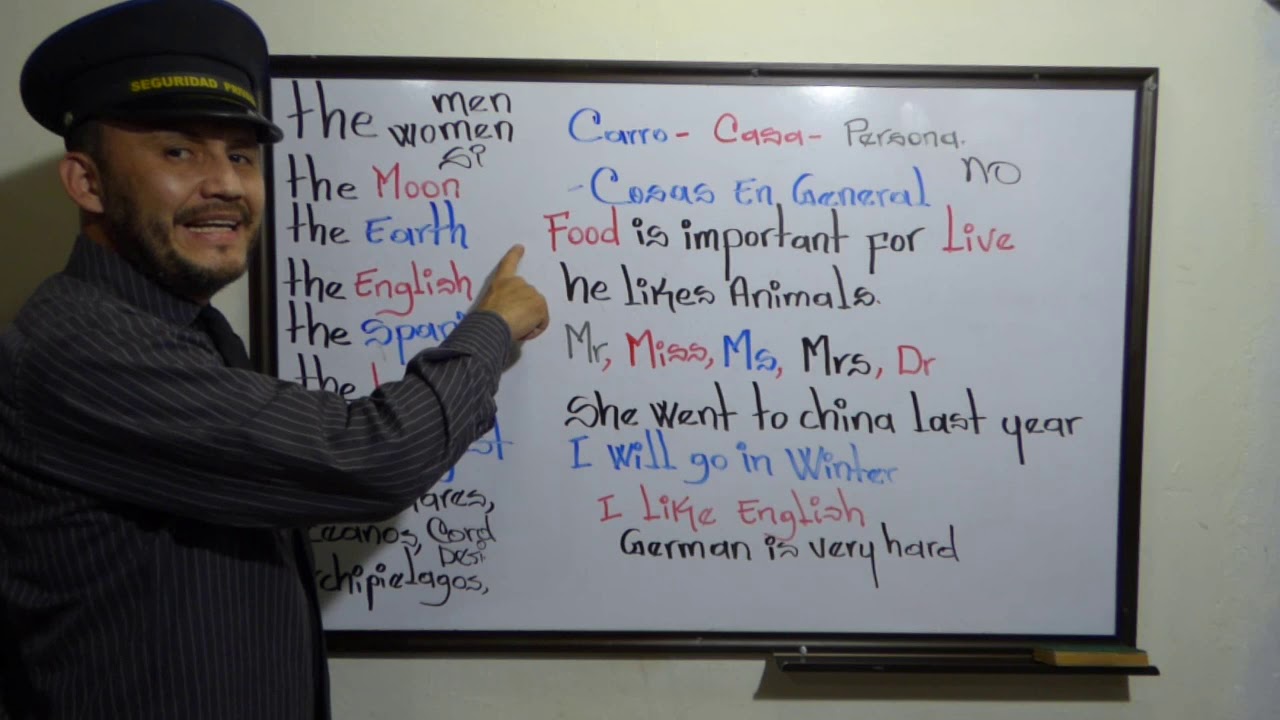 SEGURIDAD
the men
women
Sí
the Moon
the Earth
the English
the
the
ares,
Cord
Desi
chipielagos,
Carro - Casa - Persona.
NO
- Cosas En General
Food is important for Live
he likes Animals.
Mr, Miss, Ms, Mrs, Dr
She went to china last year
I will go in Winter
I Like English
German is very hard